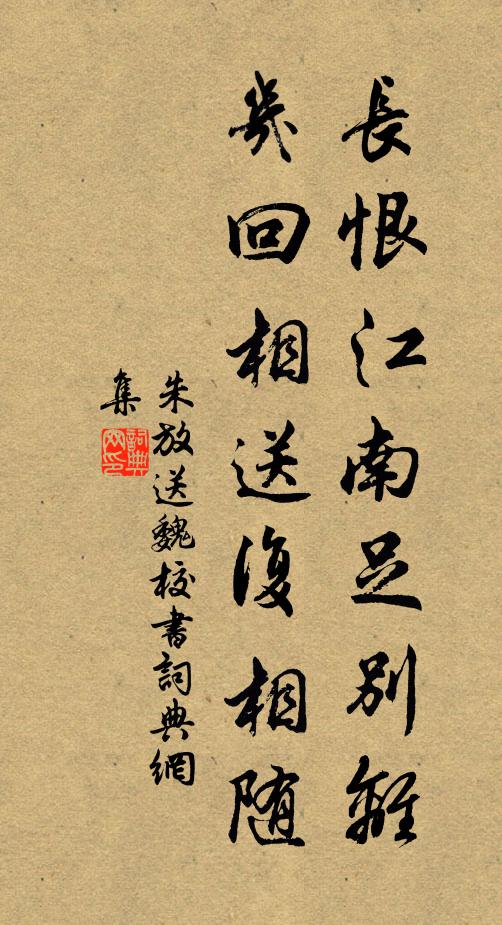 長恨江南足別離
幾回相送復相随
朱放送魏校書詞典網
集
詞典
网印